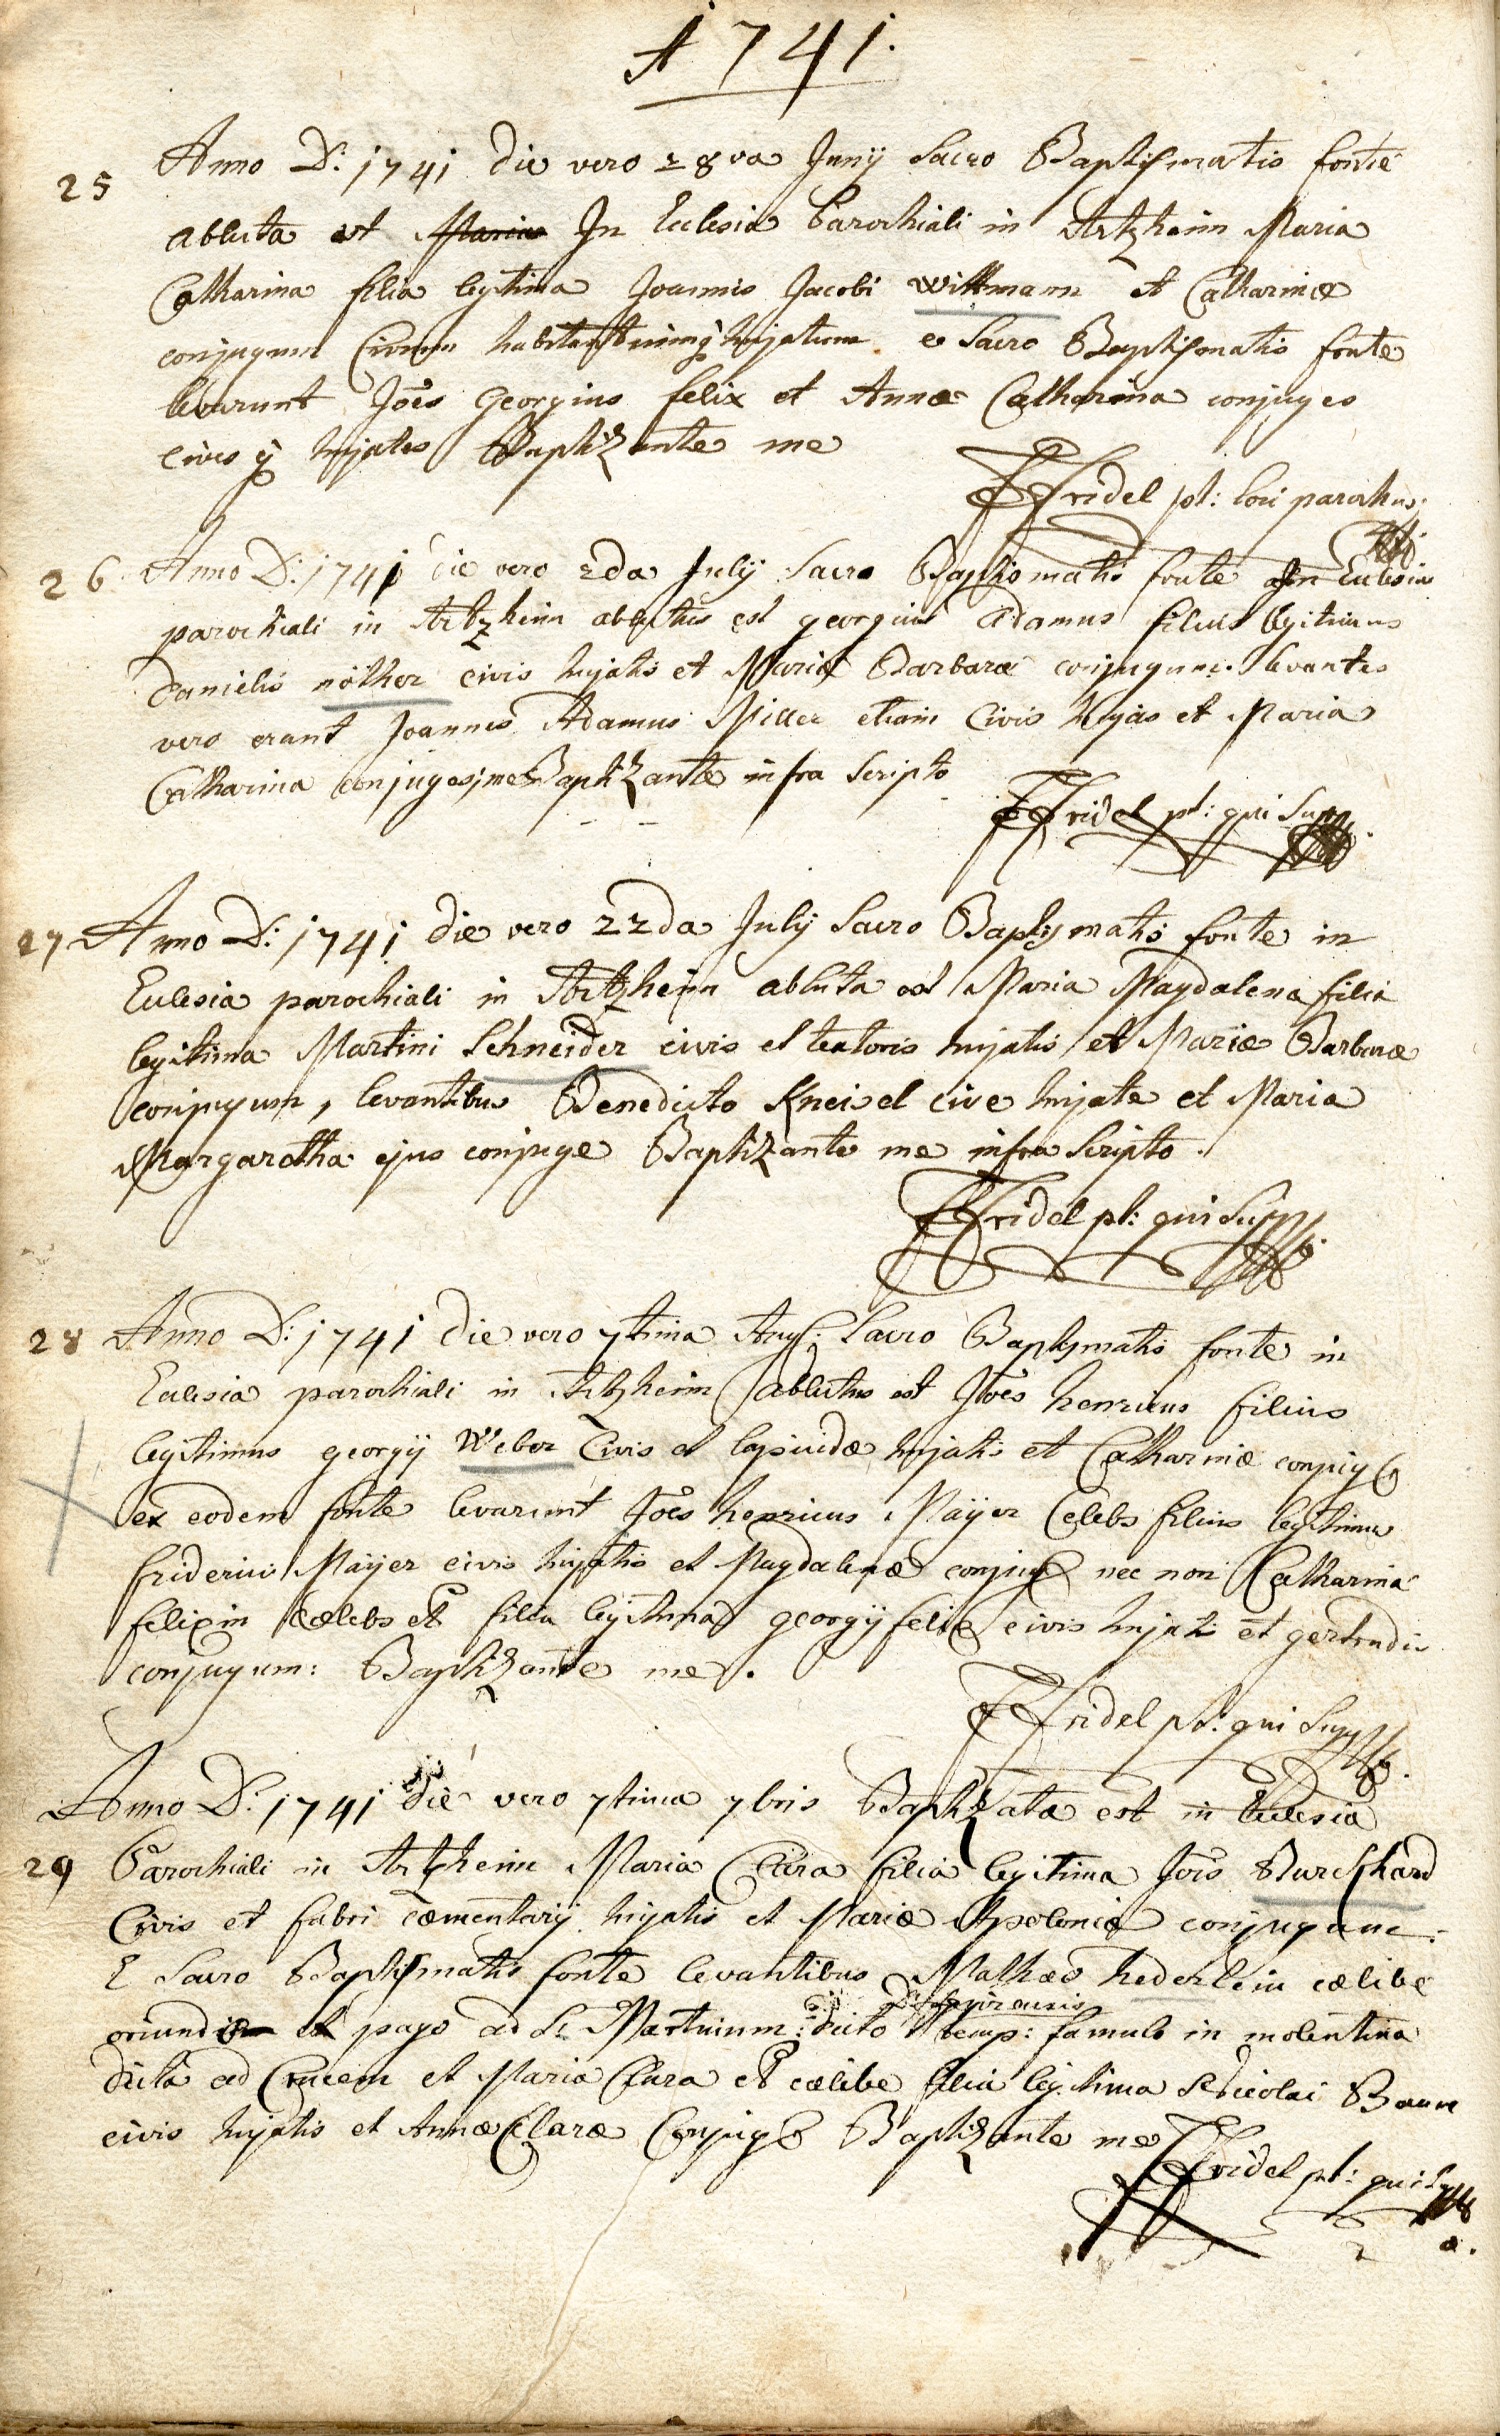 A 1741.
25 Anno D: 1741 die vero 28va Junij Sacro Baptismatis fonte
abluta est Maria In Eclesia Parochiali in Artzheim Maria
Catharina filia legitima Joannis Jacobi Wittmann et Catharinæ
conjugum Civium hujatum e Sacro Baptismatis fonte
levarunt Joēs Georgius felix et Anna Catharina conjuges
cives hujates Baptizante me
Fridel pt: loci parochus
26 Anno D: 1741 die vero 2da July Sacro Baptismatis fonte In Eclesia
parochiali in Artzheim ablutus est georgius Adamus filius legitimus
Danielis nöther civis hujatis et Mariæ Barbaræ conjugum. levantes
vero erant Joannes Adamus Miller etiam Civis hujas et Maria
Catharina conjuges, me Baptizante infra Scripto
Fridel pt: qui Supra
27 Anno D: 1741 die vero 22da July Sacro Baptismatis fonte in
Eclesia parochiali in Artzheim abluta est Maria Magdalena filia
legitima Martini Schneider civis et textoris hujatis et Mariæ Barbaræ
conjugum, levantibus Benedicto Kneisel cive hujate et Maria
Margaretha ejus conjuge Baptizante me infra Scripto.
Fridel pt: qui Supra
28 Anno D: 1741 die vero 7tima Aug: Sacro Baptismatis fonte in
Eclesia parochiali in Artzheim ablutus est Joēs henricus filius
legitimus georgij Weber Civis et lapicidæ hujatis et Catharinæ conjug
ex eodem fonte levarunt Joēs henricus Mayer Celebs filius legitimus
friderici Mayer civis hujatis et Magdalenæ conjug nec non Catharina
felixin cælebs et filia legitima georgij felix civis hujatis et gertrudis
conjugum: Baptizante me.
Fridel pt: qui Supra
Anno D: 1741 die vero 7tima 7bris Baptizata est in Eclesia
29 Parochiali in Artzheim Maria Clara filia legitima Jois Burckhard
Civis et fabri cæmentarij hujatis et Mariæ Apoloniæ conjugum:
E Sacro Baptismatis fonte levantibus Mathæo hederlein cælibe
oriundo ex pago ad St Martinum dicto temp: famulo in molentina
dicta ad Crucem et Maria Clara et cælibe filia legitima Nicolai Baum
civis hujatis et Annæ Claræ Conjug Baptizante me
Fridel pt: qui Supra